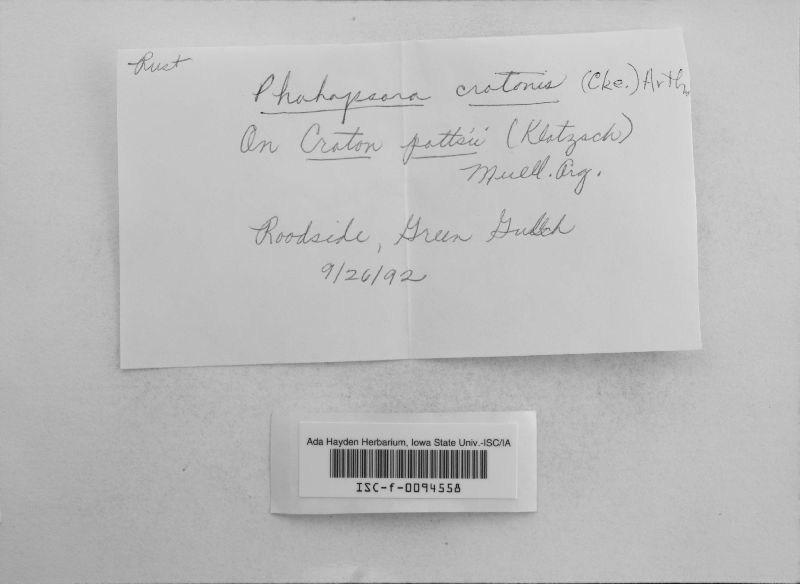 Rust
Phahapsora crotonis (Cke.) Arth.
On Croton pottsii (Klotzsch)
Muell. Arg.
Roadside, Green Gulch
9/26/92
Ada Hayden Herbarium, Iowa State Univ.-ISC/IA
ISC-f-0094558